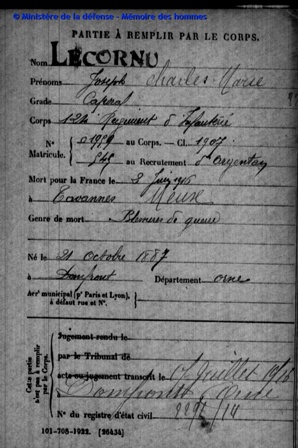 © Ministère de la défense - Mémoire des hommes
PARTIE À REMPLIR PAR LE CORPS.
Nom LECORNU
Prénoms Joseph Charles Marie
Grade Caporal
Corps 124 Régiment d'Infanterie
N° au Corps. — Cl. 1907
Matricule. 945 au Recrutement d'Argentan
Mort pour la France le 3 Juin 1916
à Tavannes Meuse
Genre de mort Blessures de guerre
Né le 21 octobre 1887
à Domfront Département Orne
Arr' municipal (p' Paris et Lyon),
à défaut rue et N°.
Cette partie n'est pas à remplir par le Corps.
Jugement rendu le
par le Tribunal de
acte ou jugement transcrit le Juillet 1916
à Domfront Orne
N° du registre d'état civil 2297/14
101-708-1922. [26434]